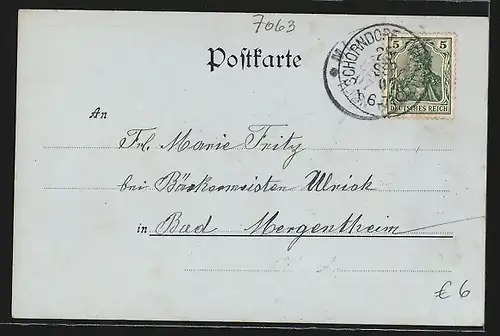 7063
Postkarte
SCHORNDORF
5 5
DEUTSCHES REICH
An
Frl. Marie Fritz
bei Bäckermeister Ulrich
in Bad Mergentheim
€ 6